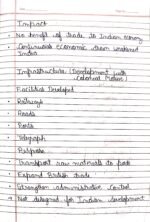 Impact
• No benefit of trade to Indian economy
• Continuous economic drain weakened
India
Infrastructure Development (with
Colonial Motive)
Facilities Developed
• Railways
• Roads
• Ports
• Telegraph
• Purpose
• Transport raw materials to ports
• Expand British trade
• Strengthen administrative control
→ Not designed for Indian development